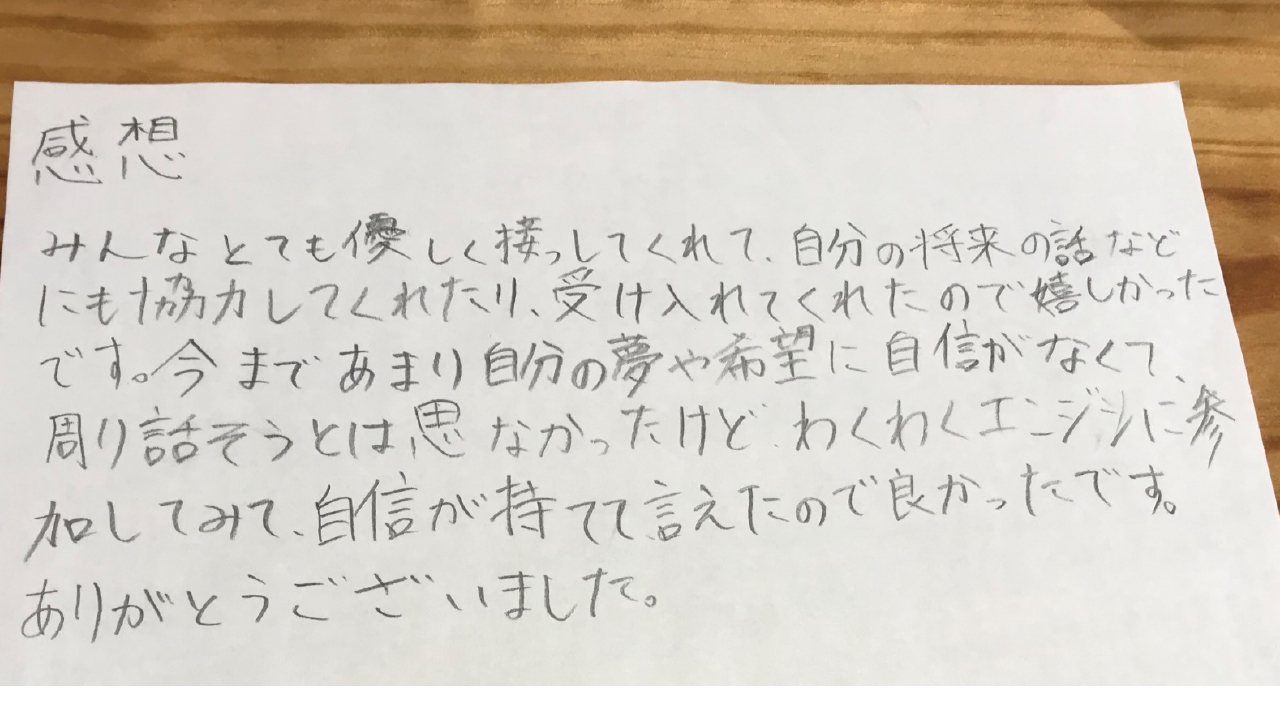 感想
みんなとても優しく接っしてくれて、自分の将来の話など
にも協力してくれたり、受け入れてくれたので嬉しかった
です。今まであまり自分の夢や希望に自信がなくて、
周り話そうとは思なかったけど、わくわくエンジンに参
加してみて、自信が持てて言えたので良かったです。
ありがとうございました。